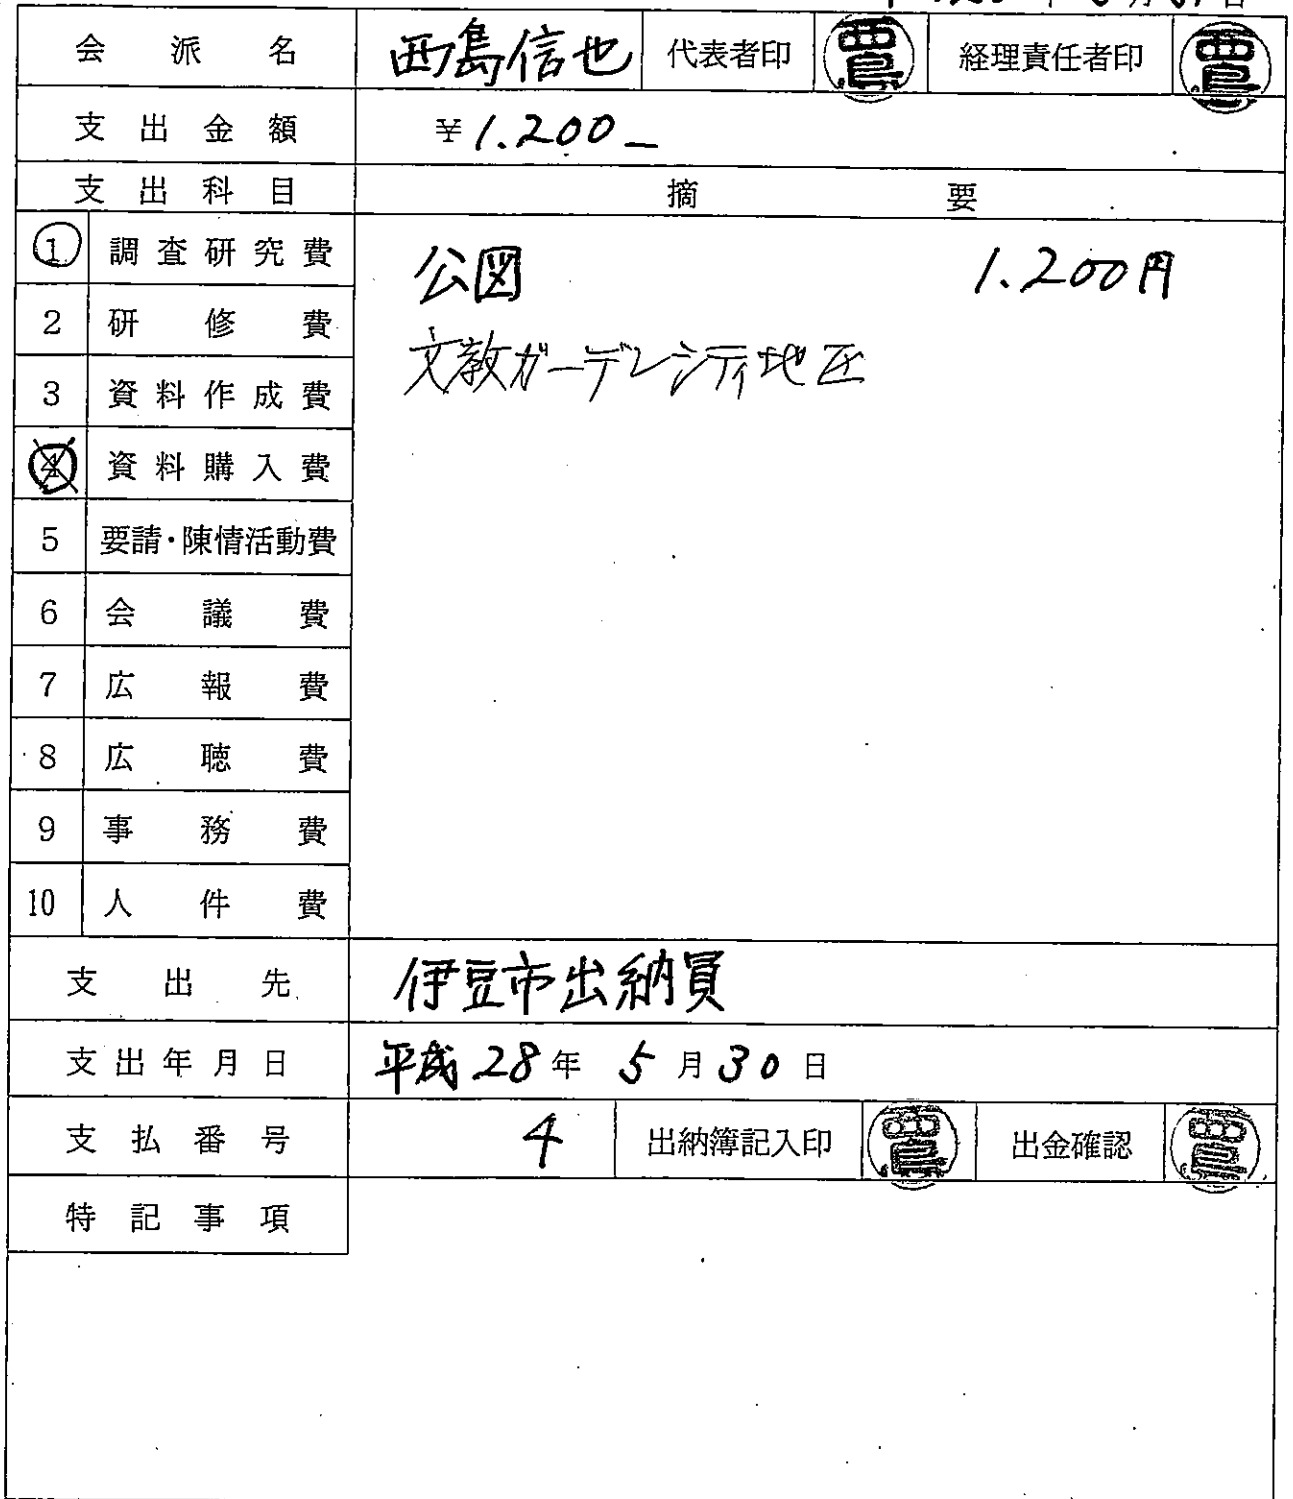 会派名 西島信也 代表者印 西島 経理責任者印 西島
支出金額 ¥1.200-
支出科目 摘要
1 調査研究費 公図 1.200円
2 研修費
文教ガーデンシティ地区
3 資料作成費
4 資料購入費
5 要請・陳情活動費
6 会議費
7 広報費
8 広聴費
9 事務費
10 人件費
支出先 伊豆市出納員
支出年月日 平成28年 5月30日
支払番号 4 出納簿記入印 西島 出金確認 西島
特記事項